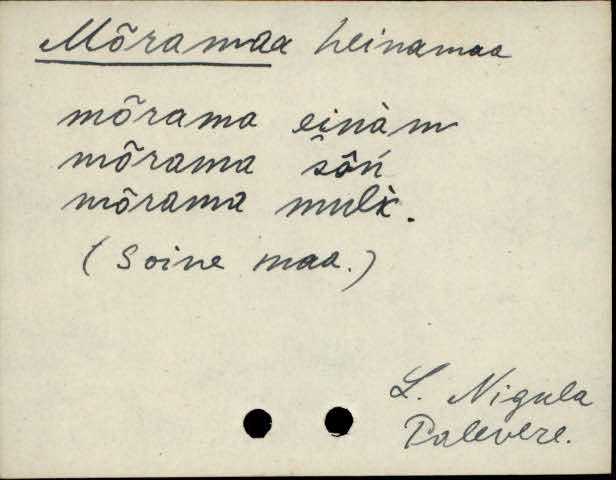 Mõramaa heinamaa
mõrama einàm
mõrama sôń
mõrama mulk̀.
(Soine maa.)
L. Nigula
Palevere.